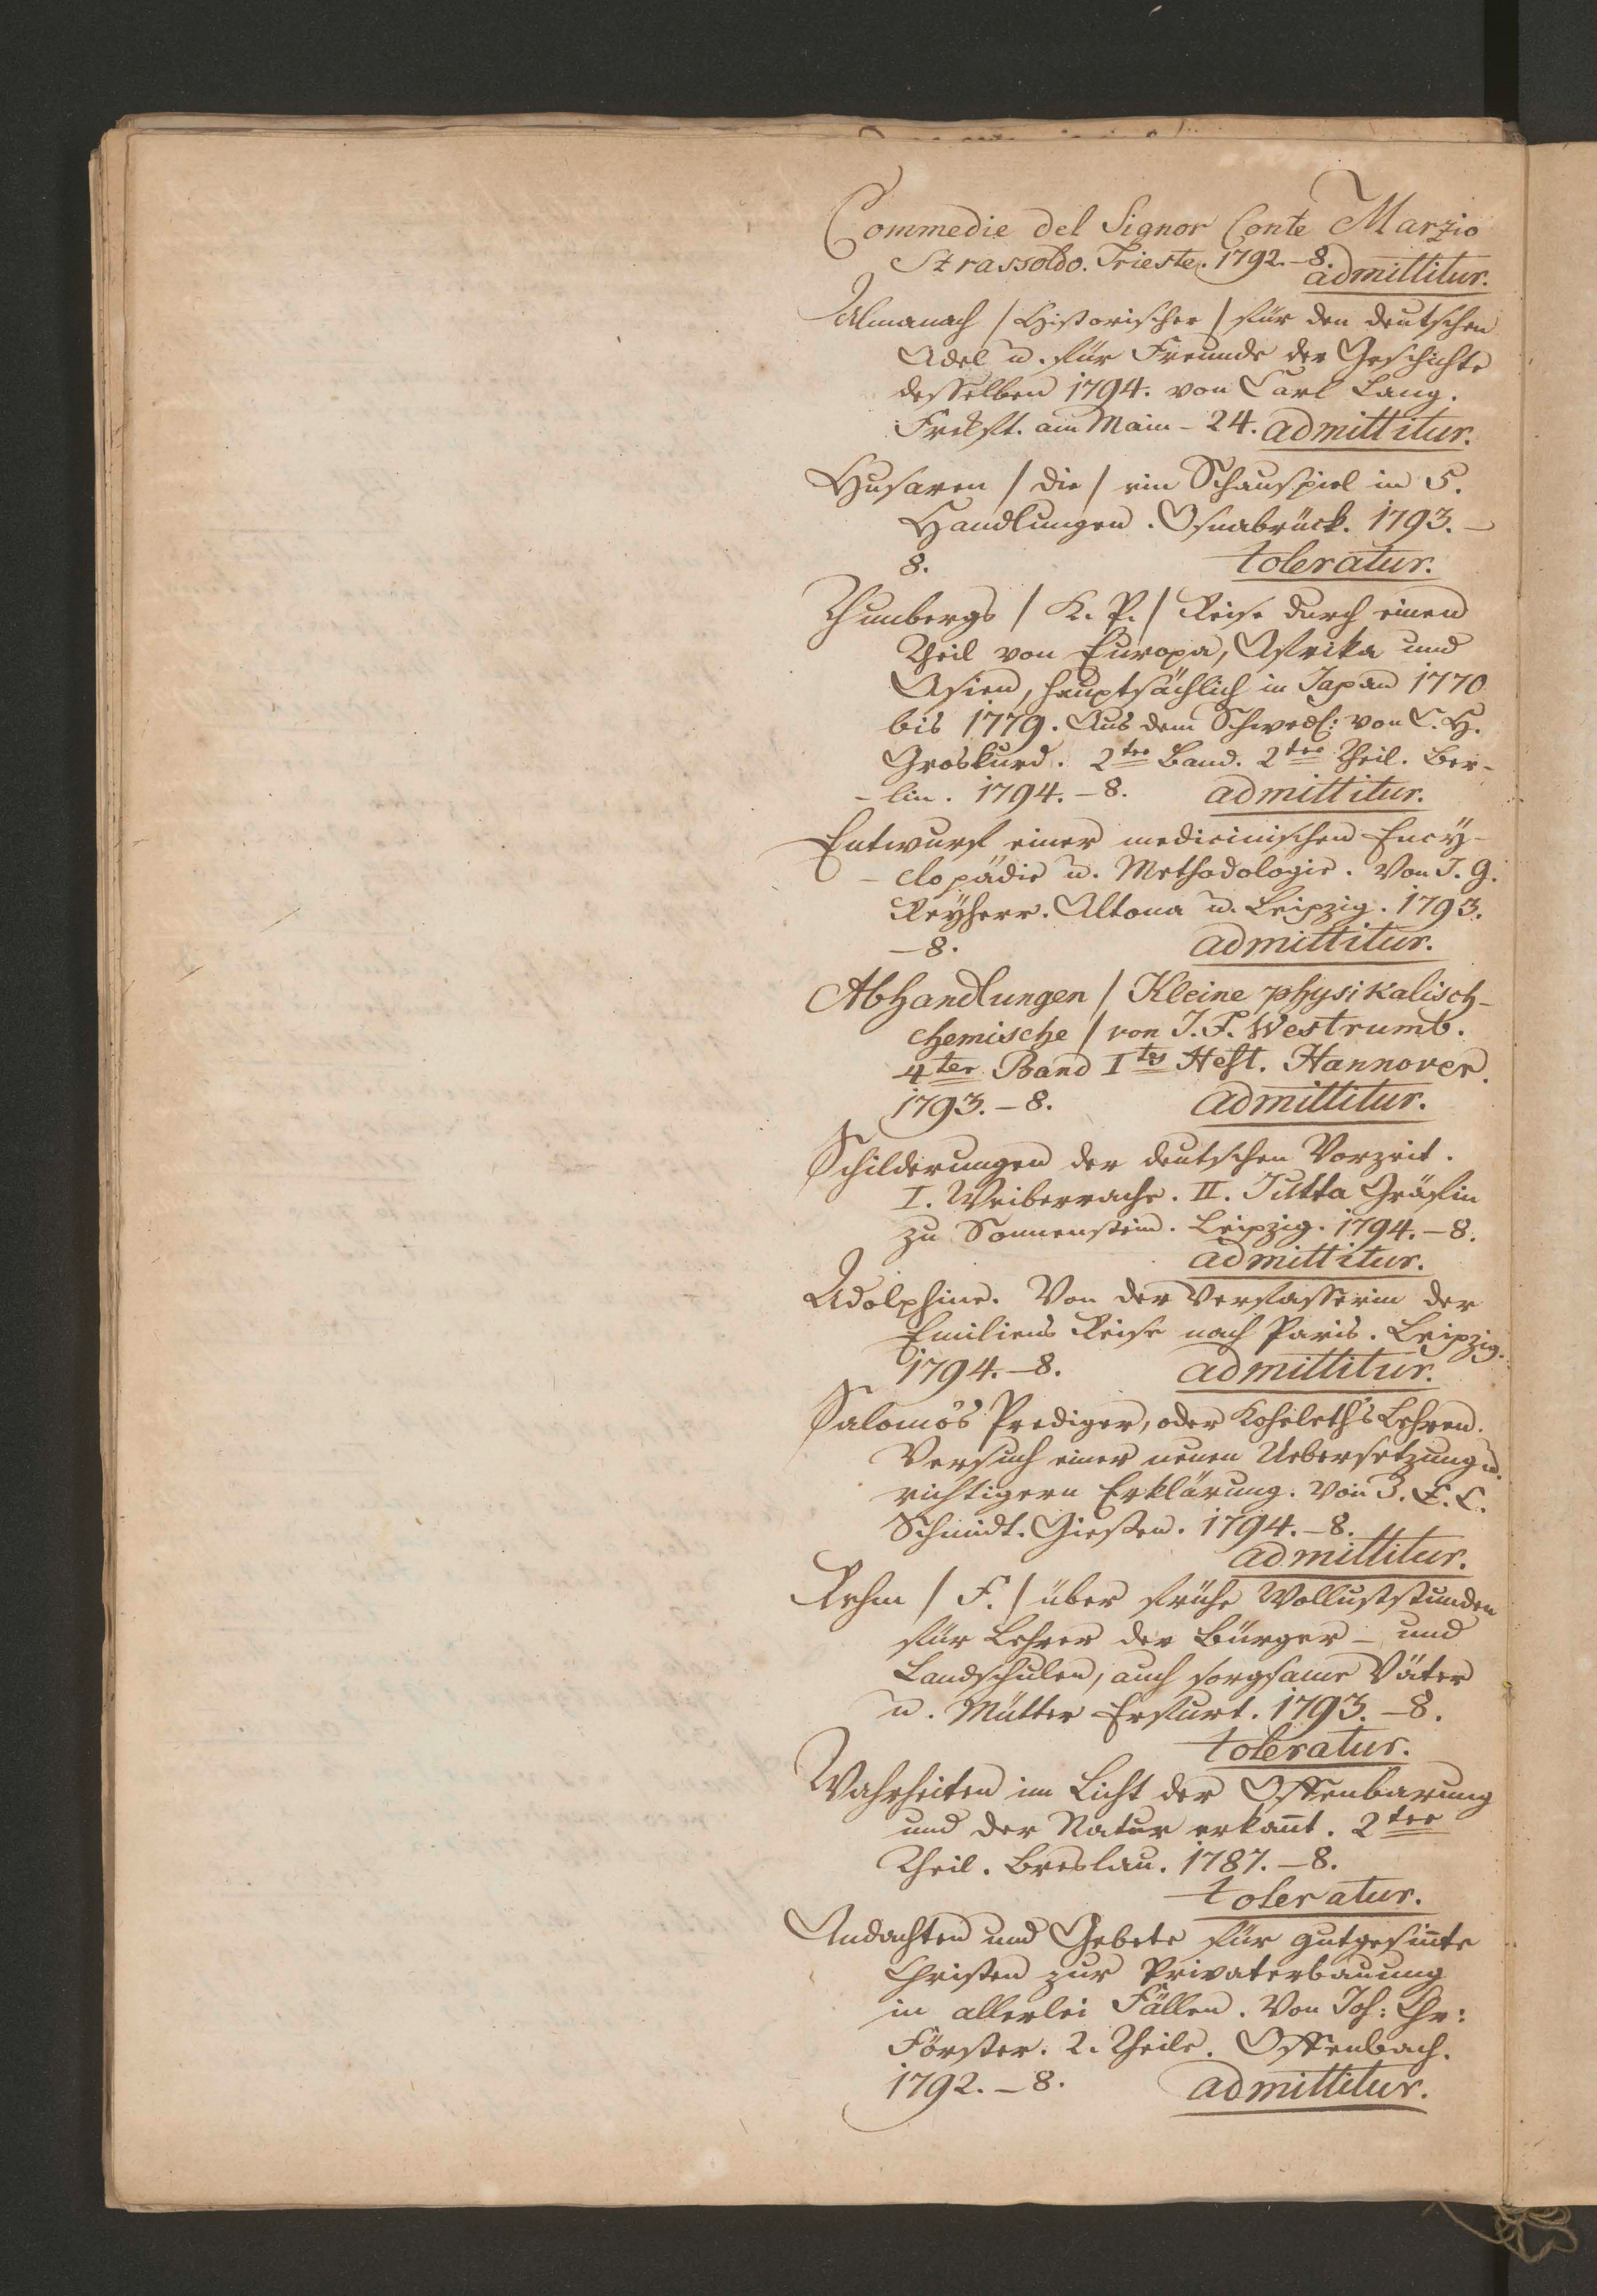 Commedie del Signor Conte Marzio
Strassoldo. Trieste. 1792. – 8.
admittitur.
Almanach / Historischer / für den deutschen
Adel u. für Freunde der Geschichte
desselben 1794. von Carl Lang.
Frckft. am Main – 24. admittitur.
Husaren / die / ein Schauspiel in 5.
Handlungen. Osnabrück. 1793. –
8. toleratur.
Thunbergs / K. P. / Reise durch einen
Theil von Europa, Afrika und
Asien, hauptsächlich in Japan 1770
bis 1779. Aus dem Schwed: von C. H.
Groskurd. 2ter Band. 2ter Theil. Ber-
- lin. 1794. – 8. admittitur.
Entwurf einer medicinischen Ency-
- clopädie u. Methodologie. Von J. G.
Reyherr. Altona u. Leipzig. 1793.
– 8. admittitur.
Abhandlungen / Kleine physikalisch-
chemische / von J. F. Westrumb.
4ter Band Ites Heft. Hannover.
1793. – 8. admittitur.
Schilderungen der deutschen Vorzeit.
I. Weiberrache. II. Jutta Gräfin
zu Sonnenstein. Leipzig. 1794. – 8.
admittitur.
Adolphine. Von der Verfasserin der
Emiliens Reise nach Paris. Leipzig.
1794. – 8. admittitur.
Salomo's Prediger, oder Koheleth's Lehren.
Versuch einer neuen Uebersetzung u.
richtigern Erklärung. Von J. E. C.
Schmidt. Giessen. 1794. – 8.
admittitur.
Rehm / F. / über frühe Wolluststunden
für Lehrer der Bürger – und
Landschulen, auch sorgsame Väter
u. Mütter Erfurt. 1793. – 8.
toleratur.
Wahrheiten im Licht der Offenbarung
und der Natur erkan̄t. 2ter
Theil. Breslau. 1787. – 8.
toleratur.
Andachten und Gebete für gutgesin̄te
Christen zur Privaterbauung
in allerlei Fällen. Von Joh: Chr:
Förster. 2. Theile. Offenbach.
1792. – 8. admittitur.